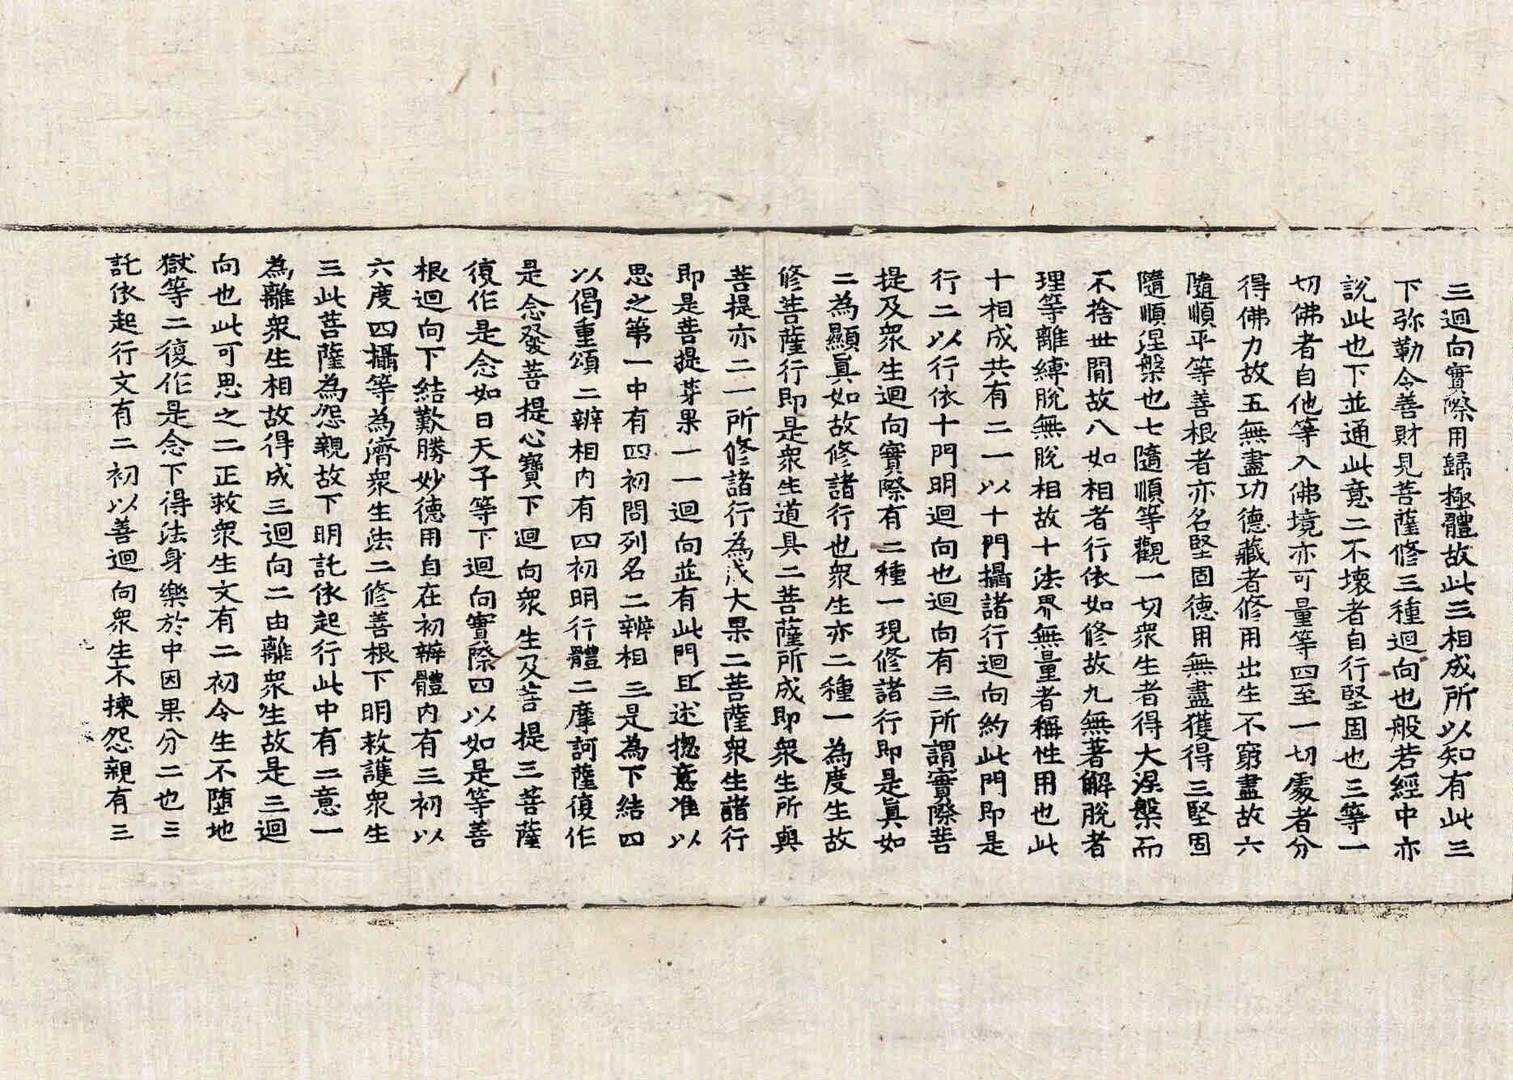 三迴向實際用歸極體故此三相成所以知有此三
下弥勒令善財見菩薩修三種迴向也般若經中亦
說此也下並通此意二不壞者自行堅固也三等一
切佛者自他等入佛境亦可量等四至一切處者分
得佛力故五無盡功德藏者修用出生不窮盡故六
隨順平等善根者亦名堅固德用無盡獲得三堅固
隨順涅槃也七隨順等觀一切衆生者得大涅槃而
不捨世間故八如相者行依如修故九無著解脫者
理等離縛脫無脫相故十法界無量者稱性用也此
十相成共有二一以十門攝諸行迴向約此門即是
行二以行依十門明迴向也迴向有三所謂實際菩
提及衆生迴向實際有二種一現修諸行即是真如
二為顯真如故修諸行也衆生亦二種一為度生故
修菩薩行即是衆生道具二菩薩所成即衆生所與
菩提亦二一所修諸行為成大果二菩薩衆生諸行
即是菩提芽果一一迴向並有此門且述揔意准以
思之第一中有四初問列名二辨相三是為下結四
以偈重頌二辨相內有四初明行體二摩訶薩復作
是念發菩提心寶下迴向衆生及菩提三菩薩
復作是念如日天子等下迴向實際四以如是等善
根迴向下結歎勝妙德用自在初辨體內有三初以
六度四攝等為濟衆生法二修善根下明救護衆生
三此菩薩為怨親故下明託依起行此中有二意一
為離衆生相故得成三迴向二由離衆生故是三迴
向也此可思之二正救衆生文有二初令生不墮地
獄等二復作是念下得法身樂於中因果分二也三
託依起行文有二初以善迴向衆生不揀怨親有三